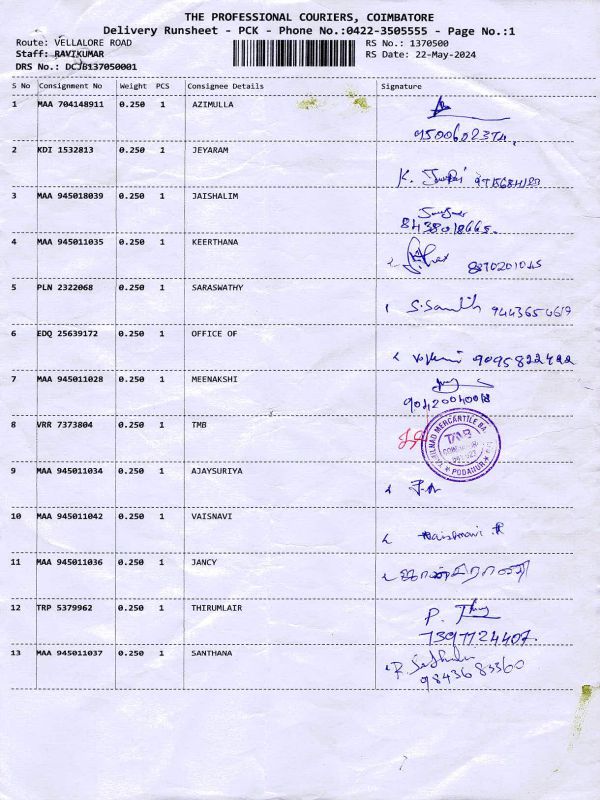 THE PROFESSIONAL COURIERS, COIMBATORE
Delivery Runsheet - PCK - Phone No.:0422-3505555 - Page No.:1
Route: VELLALORE ROAD
RS No.: 1370500
Staff: RAVIKUMAR
RS Date: 22-May-2024
DRS No.: DCJB137050001
S No Consignment No Weight PCS Consignee Details Signature
1 MAA 704148911 0.250 1 AZIMULLA
2 KDI 1532813 0.250 1 JEYARAM
K.
3 MAA 945018039 0.250 1 JAISHALIM
8438018665.
4 MAA 945011035 0.250 1 KEERTHANA
8870201045
5 PLN 2322068 0.250 1 SARASWATHY
9443654617
6 EDQ 25639172 0.250 1 OFFICE OF
9095822422
7 MAA 945011028 0.250 1 MEENAKSHI
8 VRR 7373804 0.250 1 TMB
TAMILNAD MERCANTILE BA
TMB
PODANUR
9 MAA 945011034 0.250 1 AJAYSURIYA
10 MAA 945011042 0.250 1 VAISNAVI
Vaishnavi .R
11 MAA 945011036 0.250 1 JANCY
12 TRP 5379962 0.250 1 THIRUMLAIR
P.
7397724407.
13 MAA 945011037 0.250 1 SANTHANA
9843683360